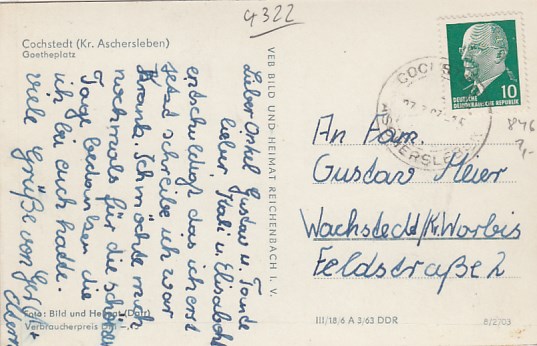 4322
Cochstedt (Kr. Aschersleben)
Goetheplatz
Lieber Onkel Gustav u. Tante
lieber Kati u. Elisabeth
entschuldigt das ich erst
jetzt schreibe ich war
krank. Ich möchte mich
nochmals für die schönen
Tage bedanken die
ich bei euch hatte.
viele Grüße von
Foto: Bild und Heimat (Darr)
Verbraucherpreis DM -,
VEB BILD UND HEIMAT REICHENBACH I. V.
DEUTSCHE
DEMOKRATISCHE REPUBLIK
10
COCHS
ASCHERSLEBEN
846
An Fam.
Gustav Heier
Wachstedt/Kr. Worbis
Feldstraße 2
III/18/6 A 3/63 DDR
8/2703